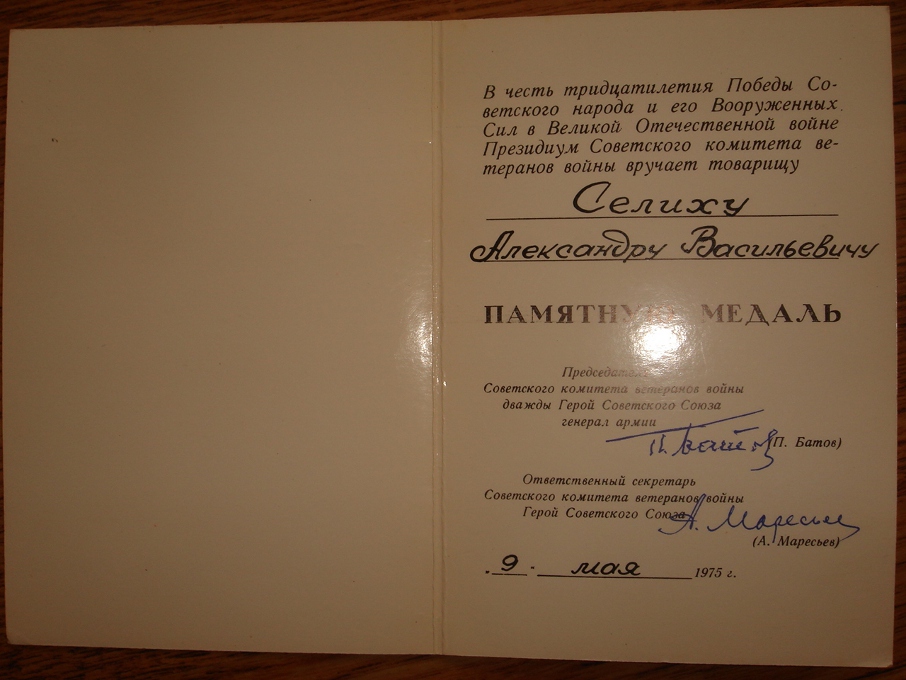 В честь тридцатилетия Победы Со-
ветского народа и его Вооруженных
Сил в Великой Отечественной войне
Президиум Советского комитета ве-
теранов войны вручает товарищу
Селиху
Александру Васильевичу
ПАМЯТНУЮ МЕДАЛЬ
Председатель
Советского комитета ветеранов войны
дважды Герой Советского Союза
генерал армии
П. Батов (П. Батов)
Ответственный секретарь
Советского комитета ветеранов войны
Герой Советского Союза А. Маресьев
(А. Маресьев)
. 9 . мая 1975 г.